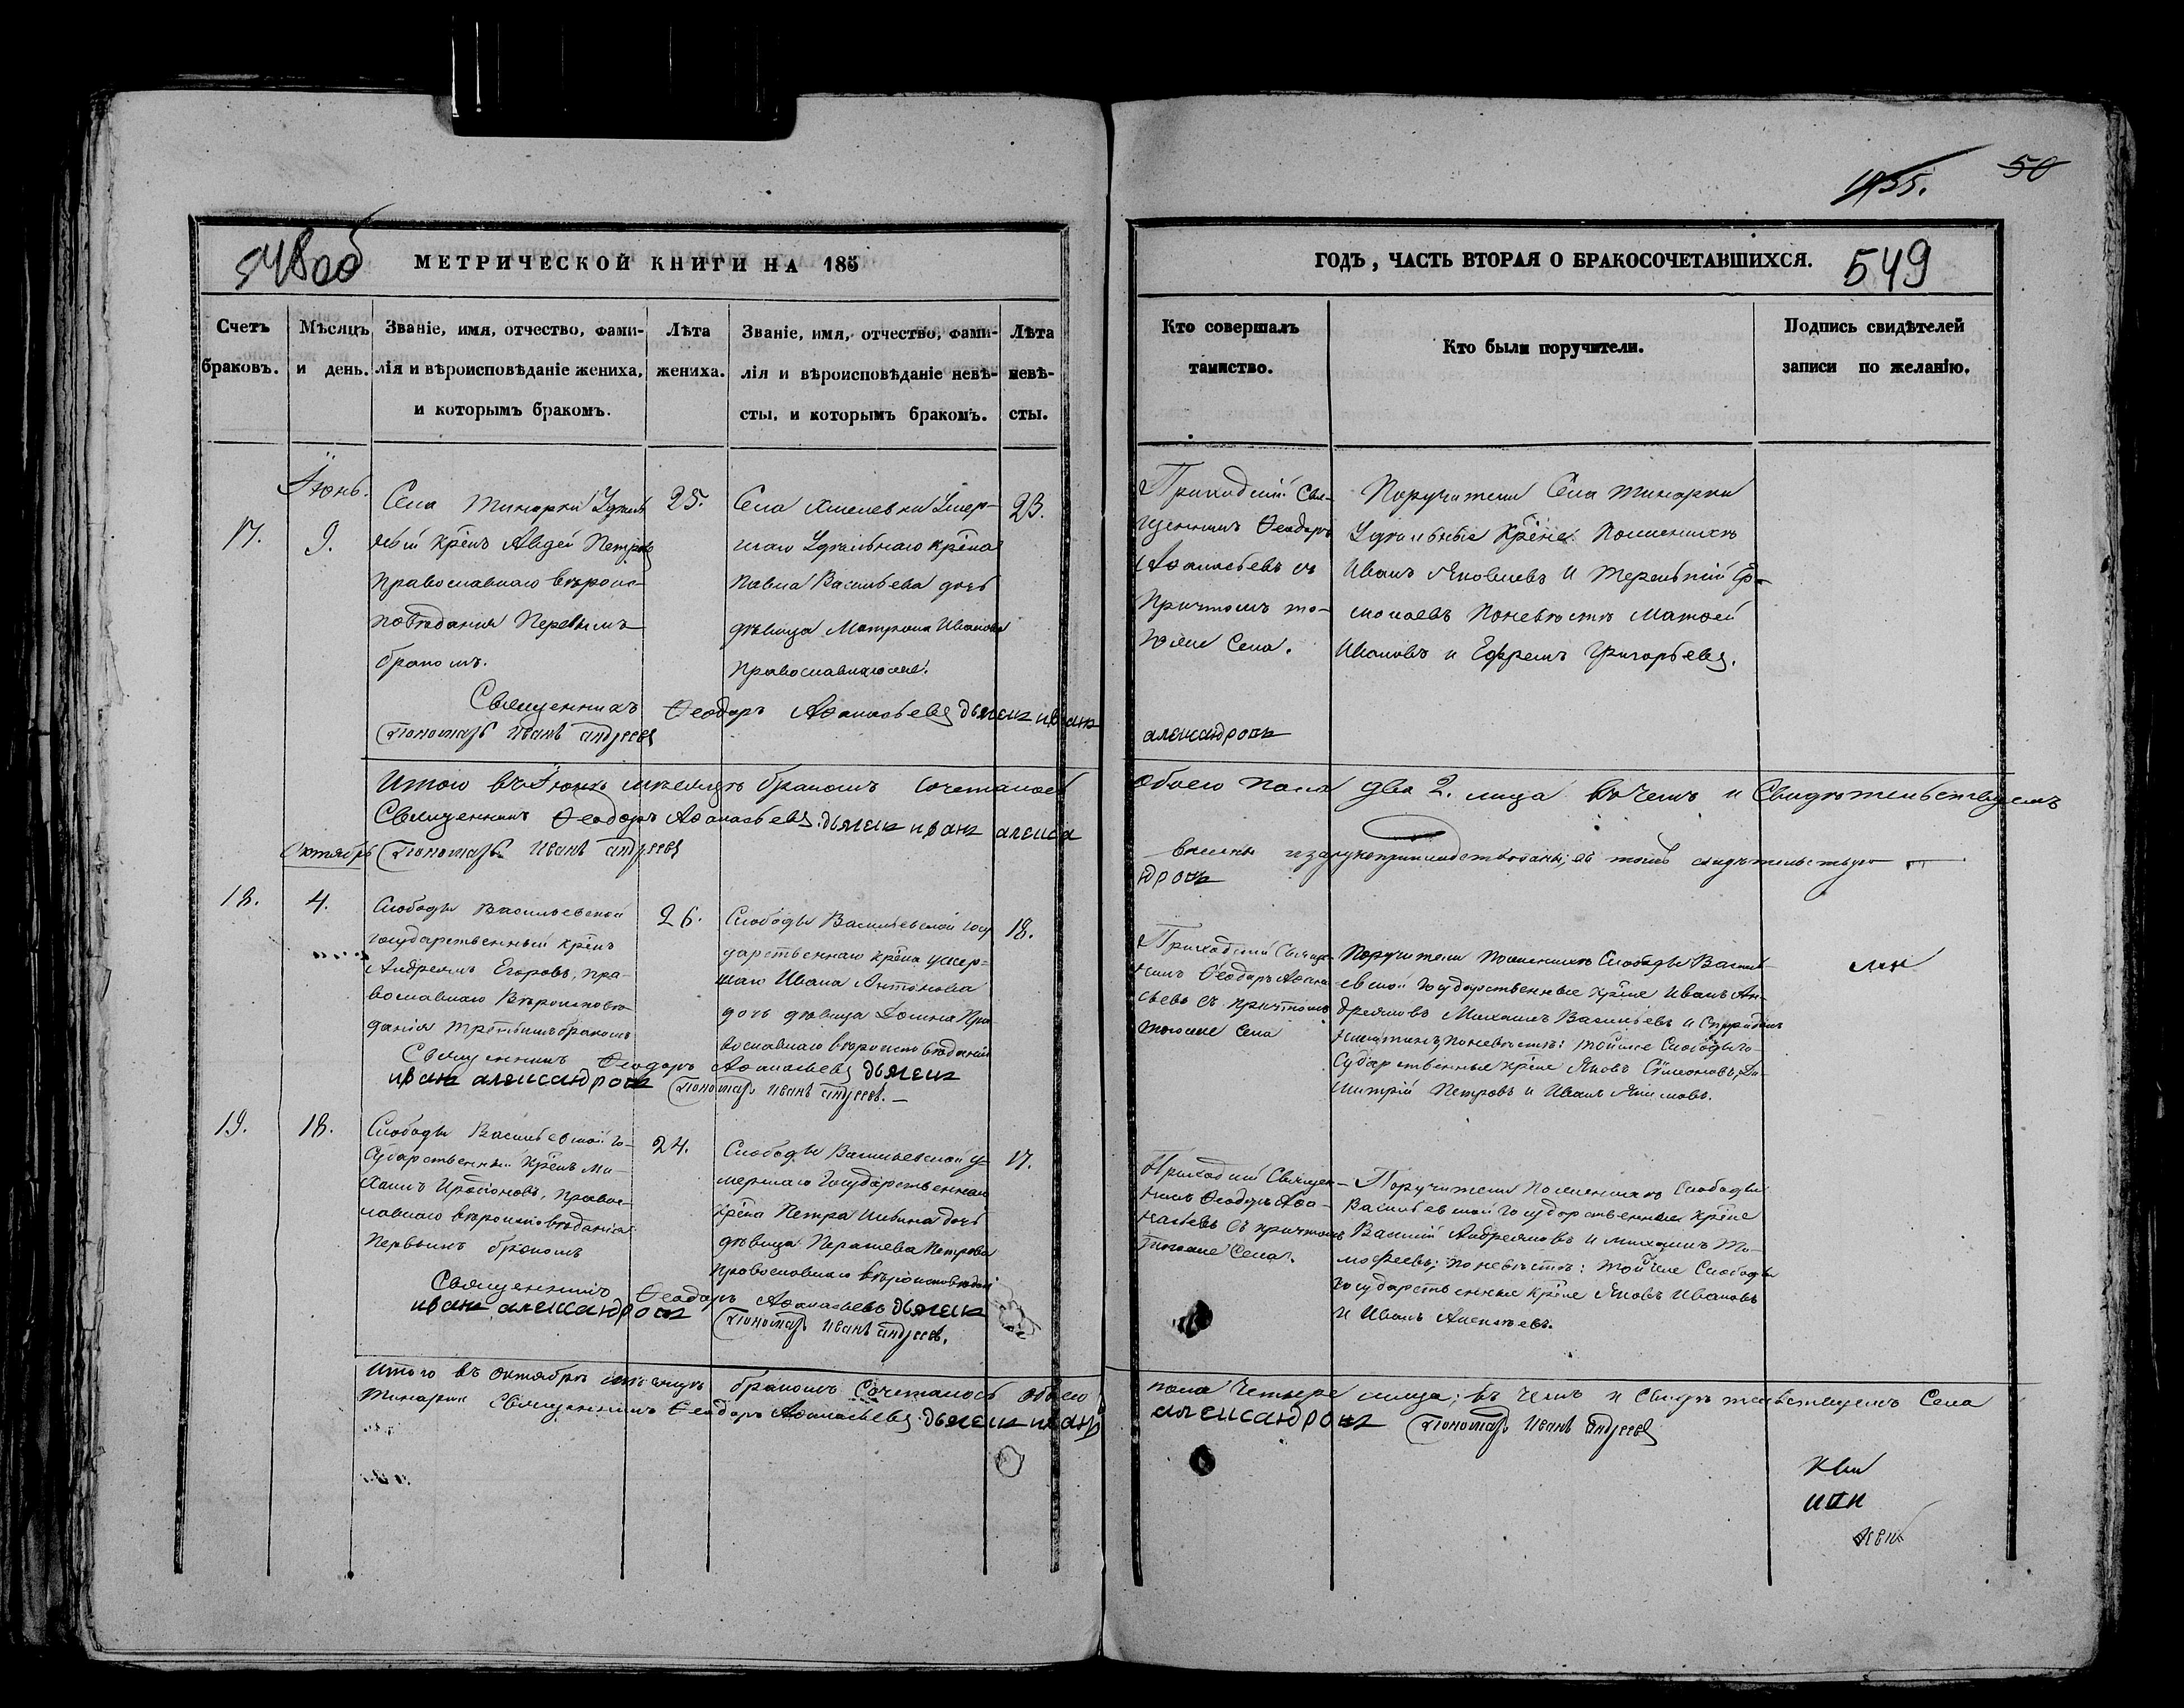 1855.
50
548об
МЕТРИЧЕСКОЙ КНИГИ НА 185
ГОДЪ, ЧАСТЬ ВТОРАЯ О БРАКОСОЧЕТАВШИХСЯ.
549
Счетъ
браковъ.
Мѣсяцъ
и день.
Званіе, имя, отчество, фами-
лія и вѣроисповѣданіе жениха,
и которымъ бракомъ.
Лѣта
жениха.
Званіе, имя, отчество, фами-
лія и вѣроисповѣданіе невѣ-
сты, и которымъ бракомъ.
Лѣта
невѣ-
сты.
Кто совершалъ
таинство.
Кто были поручители.
Подпись свидѣтелей
записи по желанію.
17.
Іюнь.
9.
Села Тинарки Удѣль
ный крѣнъ Авдей Петровъ
Православнаго вѣроис-
повѣданія Первымъ
бракомъ.
25.
Села Хмелевки Умер-
шаго Удѣльнаго крѣна
Павла Васильева дочь
дѣвица Матрона Иванова
Православнаго же.
23.
Приходскій Свя-
щенникъ Ѳеодоръ
Аѳанасьевъ съ
Причтомъ то-
гоже Села.
Поручители Села Тинарки
Удѣльные Крѣне: По женихѣ
Иванъ Яковлевъ и Терентій
Поневѣстѣ Матвей
Ивановъ и Ефремъ Григорьевъ.
Священникъ Ѳеодоръ Аѳанасьевъ дьячекъ иванъ
александровъ
Пономарь Иванъ Андреевъ
Итого въ Іюнѣ мѣсяцѣ бракомъ сочеталось обоего пола два 2. лица въ чемъ и Свидѣтельствуемъ
Священникъ Ѳеодоръ Аѳанасьевъ. дьячекъ иванъ алекса
ндровъ
Пономарь Иванъ Андреевъ
Октябрь
18.
4.
Слободы Васильевской
государственный крѣнъ
Андреянъ Егоровъ, пра-
вославнаго Вѣроисповѣ-
данія третьимъ бракомъ
26.
Слободы Васильевской госу
дарственнаго крѣна умер=
шаго Ивана Антонова
дочь дѣвица Домна Пра
вославнаго вѣроисповѣданія
18.
Приходскій Священ-
никъ Ѳеодоръ Аѳана-
сьевъ съ причтомъ
тогоже Села
Поручители по женихѣ Слободы Василь-
евской Государственные крѣне Иванъ Ан-
дреяновъ Михаилъ Васильевъ и Спиридонъ
Никитинъ, поневѣстѣ: тойже Слободы го-
сударственные крѣне Яковъ Симеоновъ, Ди-
митрій Петровъ и Иванъ
Священникъ Ѳеодоръ Аѳанасьевъ дьячекъ
иванъ александровъ Пономарь Иванъ Андреевъ.
19.
18.
Слободы Васильевской го-
сударственный крѣнъ Ми-
хаилъ Иродіоновъ, правос-
лавнаго вѣроисповѣданія
первымъ бракомъ
24.
Слободы Васильевской у-
мершаго Государственнаго
крѣна Петра Ильина дочь
дѣвица Параскева Петрова
православнаго вѣроисповѣданія
17.
Приходскій Священ-
никъ Ѳеодоръ Аѳа-
насьевъ съ причтомъ
тогоже Села.
Поручители по женихѣ Слободы
Васильевской государственные крѣне
Василій Андреяновъ и Михаилъ Ти-
моѳеевъ; поневѣстѣ: тойже Слободы
государственные крѣне Яковъ Ивановъ
и Иванъ Алексѣевъ.
Священникъ Ѳеодоръ Аѳанасьевъ дьячекъ
иванъ александровъ Пономарь Иванъ Андреевъ.
Итого въ октябрѣ мѣсяцѣ бракомъ сочеталось обоего пола четыре лица; въ чемъ и свидѣтельствуемъ Села
Тинарки Священникъ Ѳеодоръ Аѳанасьевъ. дьячекъ иванъ александровъ Пономарь Иванъ Андреевъ